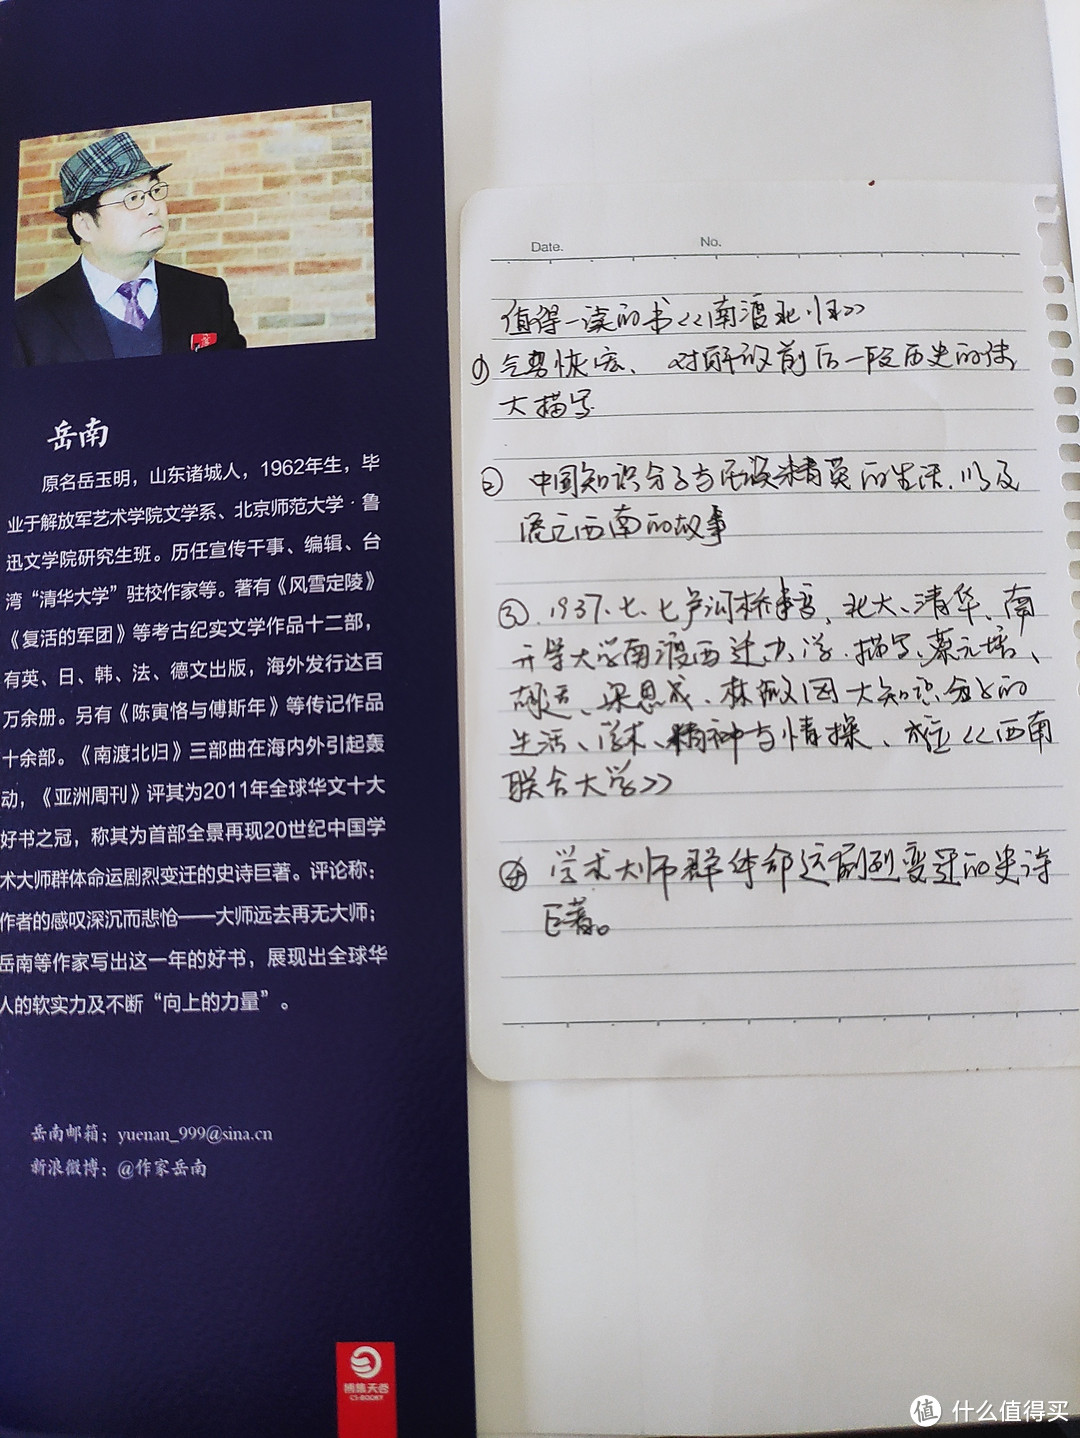 岳南
原名岳玉明，山东诸城人，1962年生，毕
业于解放军艺术学院文学系、北京师范大学·鲁
迅文学院研究生班。历任宣传干事、编辑、台
湾“清华大学”驻校作家等。著有《风雪定陵》
《复活的军团》等考古纪实文学作品十二部，
有英、日、韩、法、德文出版，海外发行达百
万余册。另有《陈寅恪与傅斯年》等传记作品
十余部。《南渡北归》三部曲在海内外引起轰
动，《亚洲周刊》评其为2011年全球华文十大
好书之冠，称其为首部全景再现20世纪中国学
术大师群体命运剧烈变迁的史诗巨著。评论称：
作者的感叹深沉而悲怆——大师远去再无大师；
岳南等作家写出这一年的好书，展现出全球华
人的软实力及不断“向上的力量”。
岳南邮箱：yuenan_999@sina.cn
新浪微博：@作家岳南
博集天卷
CS-BOOKY
Date. No.
值得一读的书<<南渡北归>>
① 气势恢宏、对解放前后一段历史的
大描写
② 中国知识分子与民族精英的生活、以及
西南的故事
③.1937.七.七芦沟桥事变,北大、清华、南
开等大学南渡西迁办学.描写蔡元培、
胡适、梁思成、林徽因大知识分子的
生活、学术、精神与情操、成立<<西南
联合大学>>
④ 学术大师群体命运剧烈变迁的史诗
巨著。
值 什么值得买